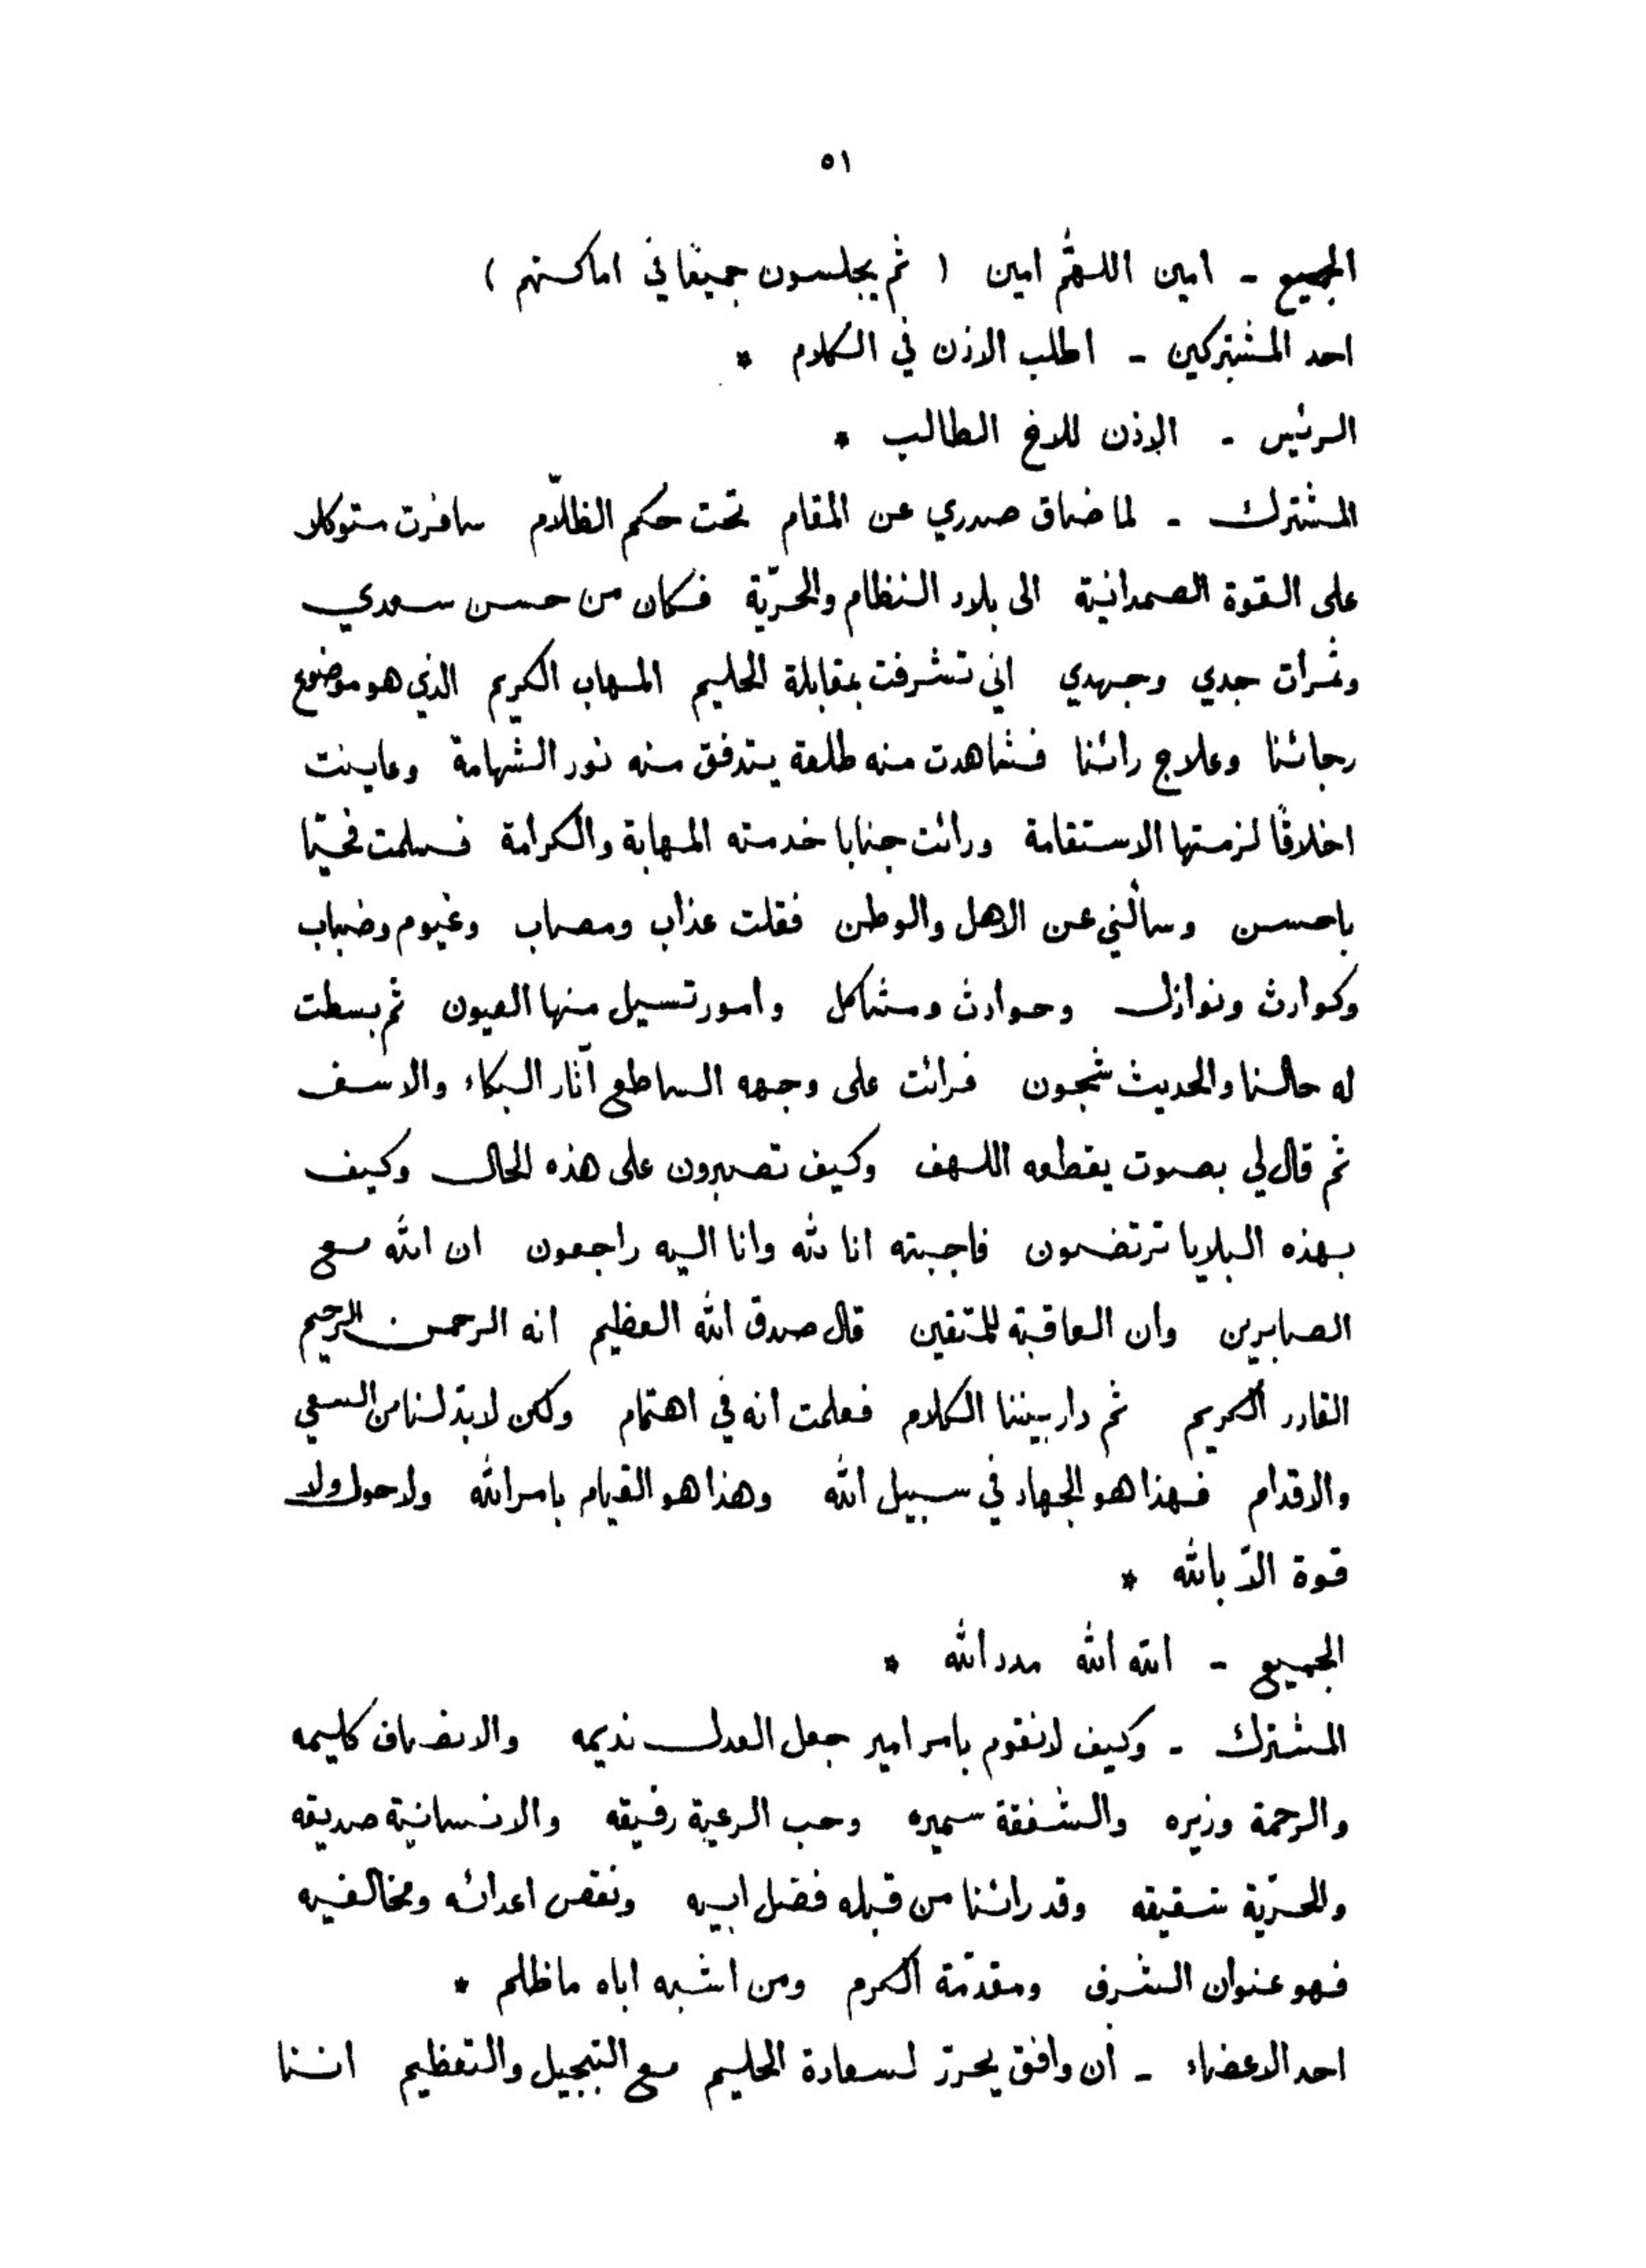 ٥١
الجميع - امين اللهمّ امين ( ثم يجلسون جميعًا في اماكنهم )
احد المشتركين - اطلب الاذن في الكلام *
الرئيس - الاذن للاخ الطالب *
المشترك - لما ضاق صدري عن المقام تحت حكم الظلّام سافرت متوكلا
على القوة الصمدانية الى بلاد النظام والحرّية فكان من حسن سعدي
وثمرات جدي وجهدي اني تشرفت بمقابلة الحليم المهاب الكريم الذي هو موضوع
رجائنا وعلاج دائنا فشاهدت منه طلعة يتدفق منه نور الشهامة وعاينت
اخلاقًا لزمتها الاستقامة ورائت جنابا خدمته المهابة والكرامة فسلمت فحيّا
باحسن وسألني عن الاهل والوطن فقلت عذاب ومصاب وغيوم وضباب
وكوارث ونوازل وحوادث ومشاكل وامور تسيل منها العيون ثم بسطت
له حالنا والحديث شجون فرائت على وجهه الساطع آثار البكاء والاسف
ثم قال لي بصوت يقطعه اللهف وكيف تصبرون على هذه الحال وكيف
بهذه البلايا ترتضون فاجبته انا لله وانا اليه راجعون ان الله مع
الصابرين وان العاقبة للمتقين قال صدق الله العظيم انه الرحمن الرحيم
القادر الكريم ثم دار بيننا الكلام فعلمت انه في اهتمام ولكن لابدّ لنا من السعي
والاقدام فهذا هو الجهاد في سبيل الله وهذا هو القيام بامر الله ولا حول ولا
قوة الاّ بالله *
الجميع - الله الله مدد الله *
المشترك - وكيف لانقوم بامر امير جعل العدل نديمه والانصاف كليمه
والرحمة وزيره والشفقة سميره وحب الرعية رفيقه والانسانية صديقه
والحرّية شقيقه وقد رائنا من قبله فضل ابيه ونقص اعدائه ومخالفيه
فهو عنوان الشرف ومقدّمة الكرم ومن اشبه اباه ماظلم *
احد الاعضاء - أن وافق يحرّر لسعادة الحليم مع التبجيل والتعظيم اننا